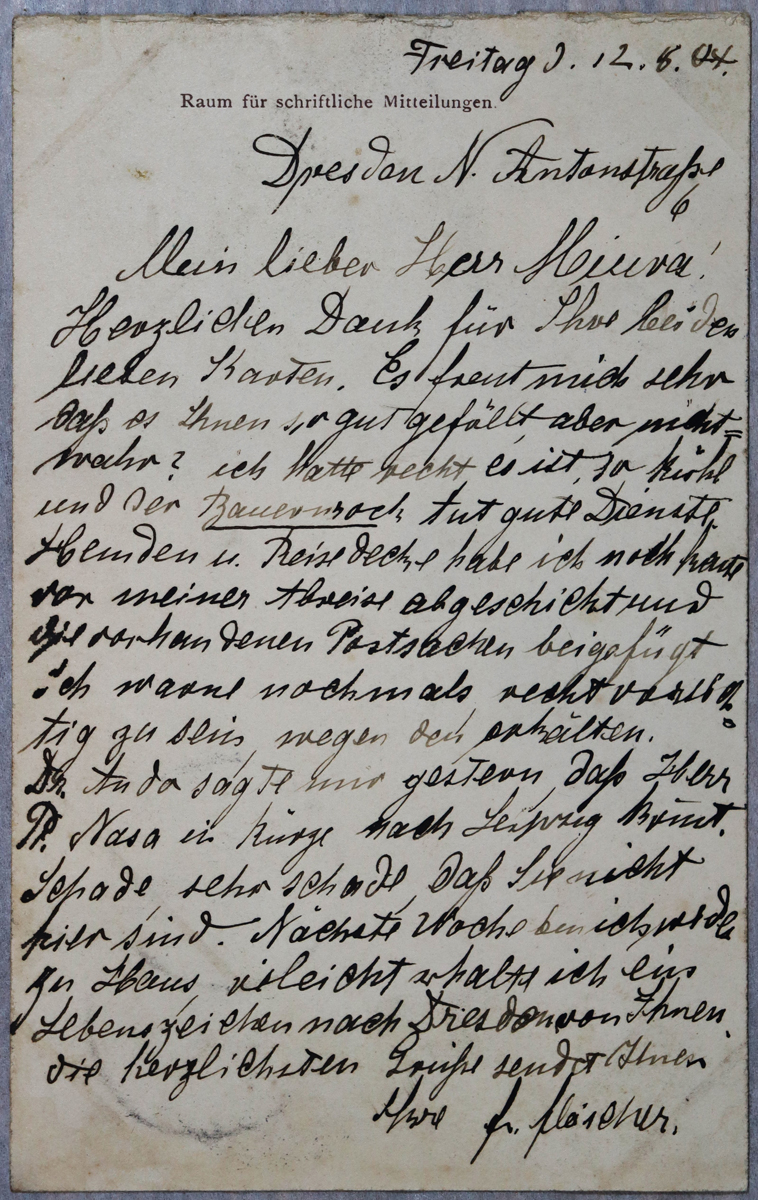 Freitag d. 12. 8. 04.
Raum für schriftliche Mitteilungen.
Dresden N. Antonstraße
6
Mein lieber Herr Miura!
Herzlichen Dank für Ihre beiden
lieben Karten. Es freut mich sehr
daß es Ihnen so gut gefällt aber nicht=
wahr? ich hatte recht es ist so kühl
und der Bauernrock tut gute Dienste,
Hemden u. Reisedecke habe ich noch
vor meiner Abreise abgeschickt und
die vorhandenen Postsachen beigefügt
ich warne nochmals recht vorsich=
tig zu sein wegen den erkälten.
Dr. Ando sagte mir gestern daß Herr
Nasa in kürze nach Leipzig kömt.
Schade, sehr schade, daß Sie nicht
hier sind. Nächste Woche bin ich wieder
zu Haus vieleicht erhalte ich ein
Lebenszeichen nach Dresden von Ihnen.
die herzlichsten Grüße sendet Ihnen
Ihre fr.